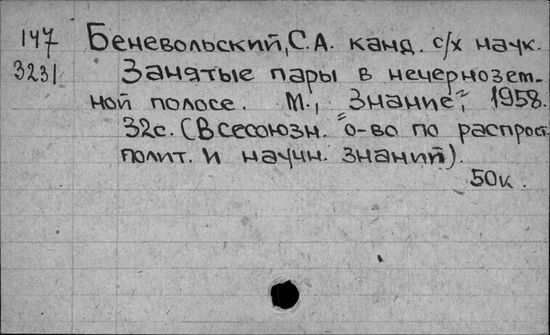 147 Беневольский, С.А. канд. с/х наук.
3231 Занятые пары в нечернозем-
ной полосе. М., "Знание", 1958.
32с. (Всесоюзн. о-во по распрост.
полит. и научн. знаний).
50к.